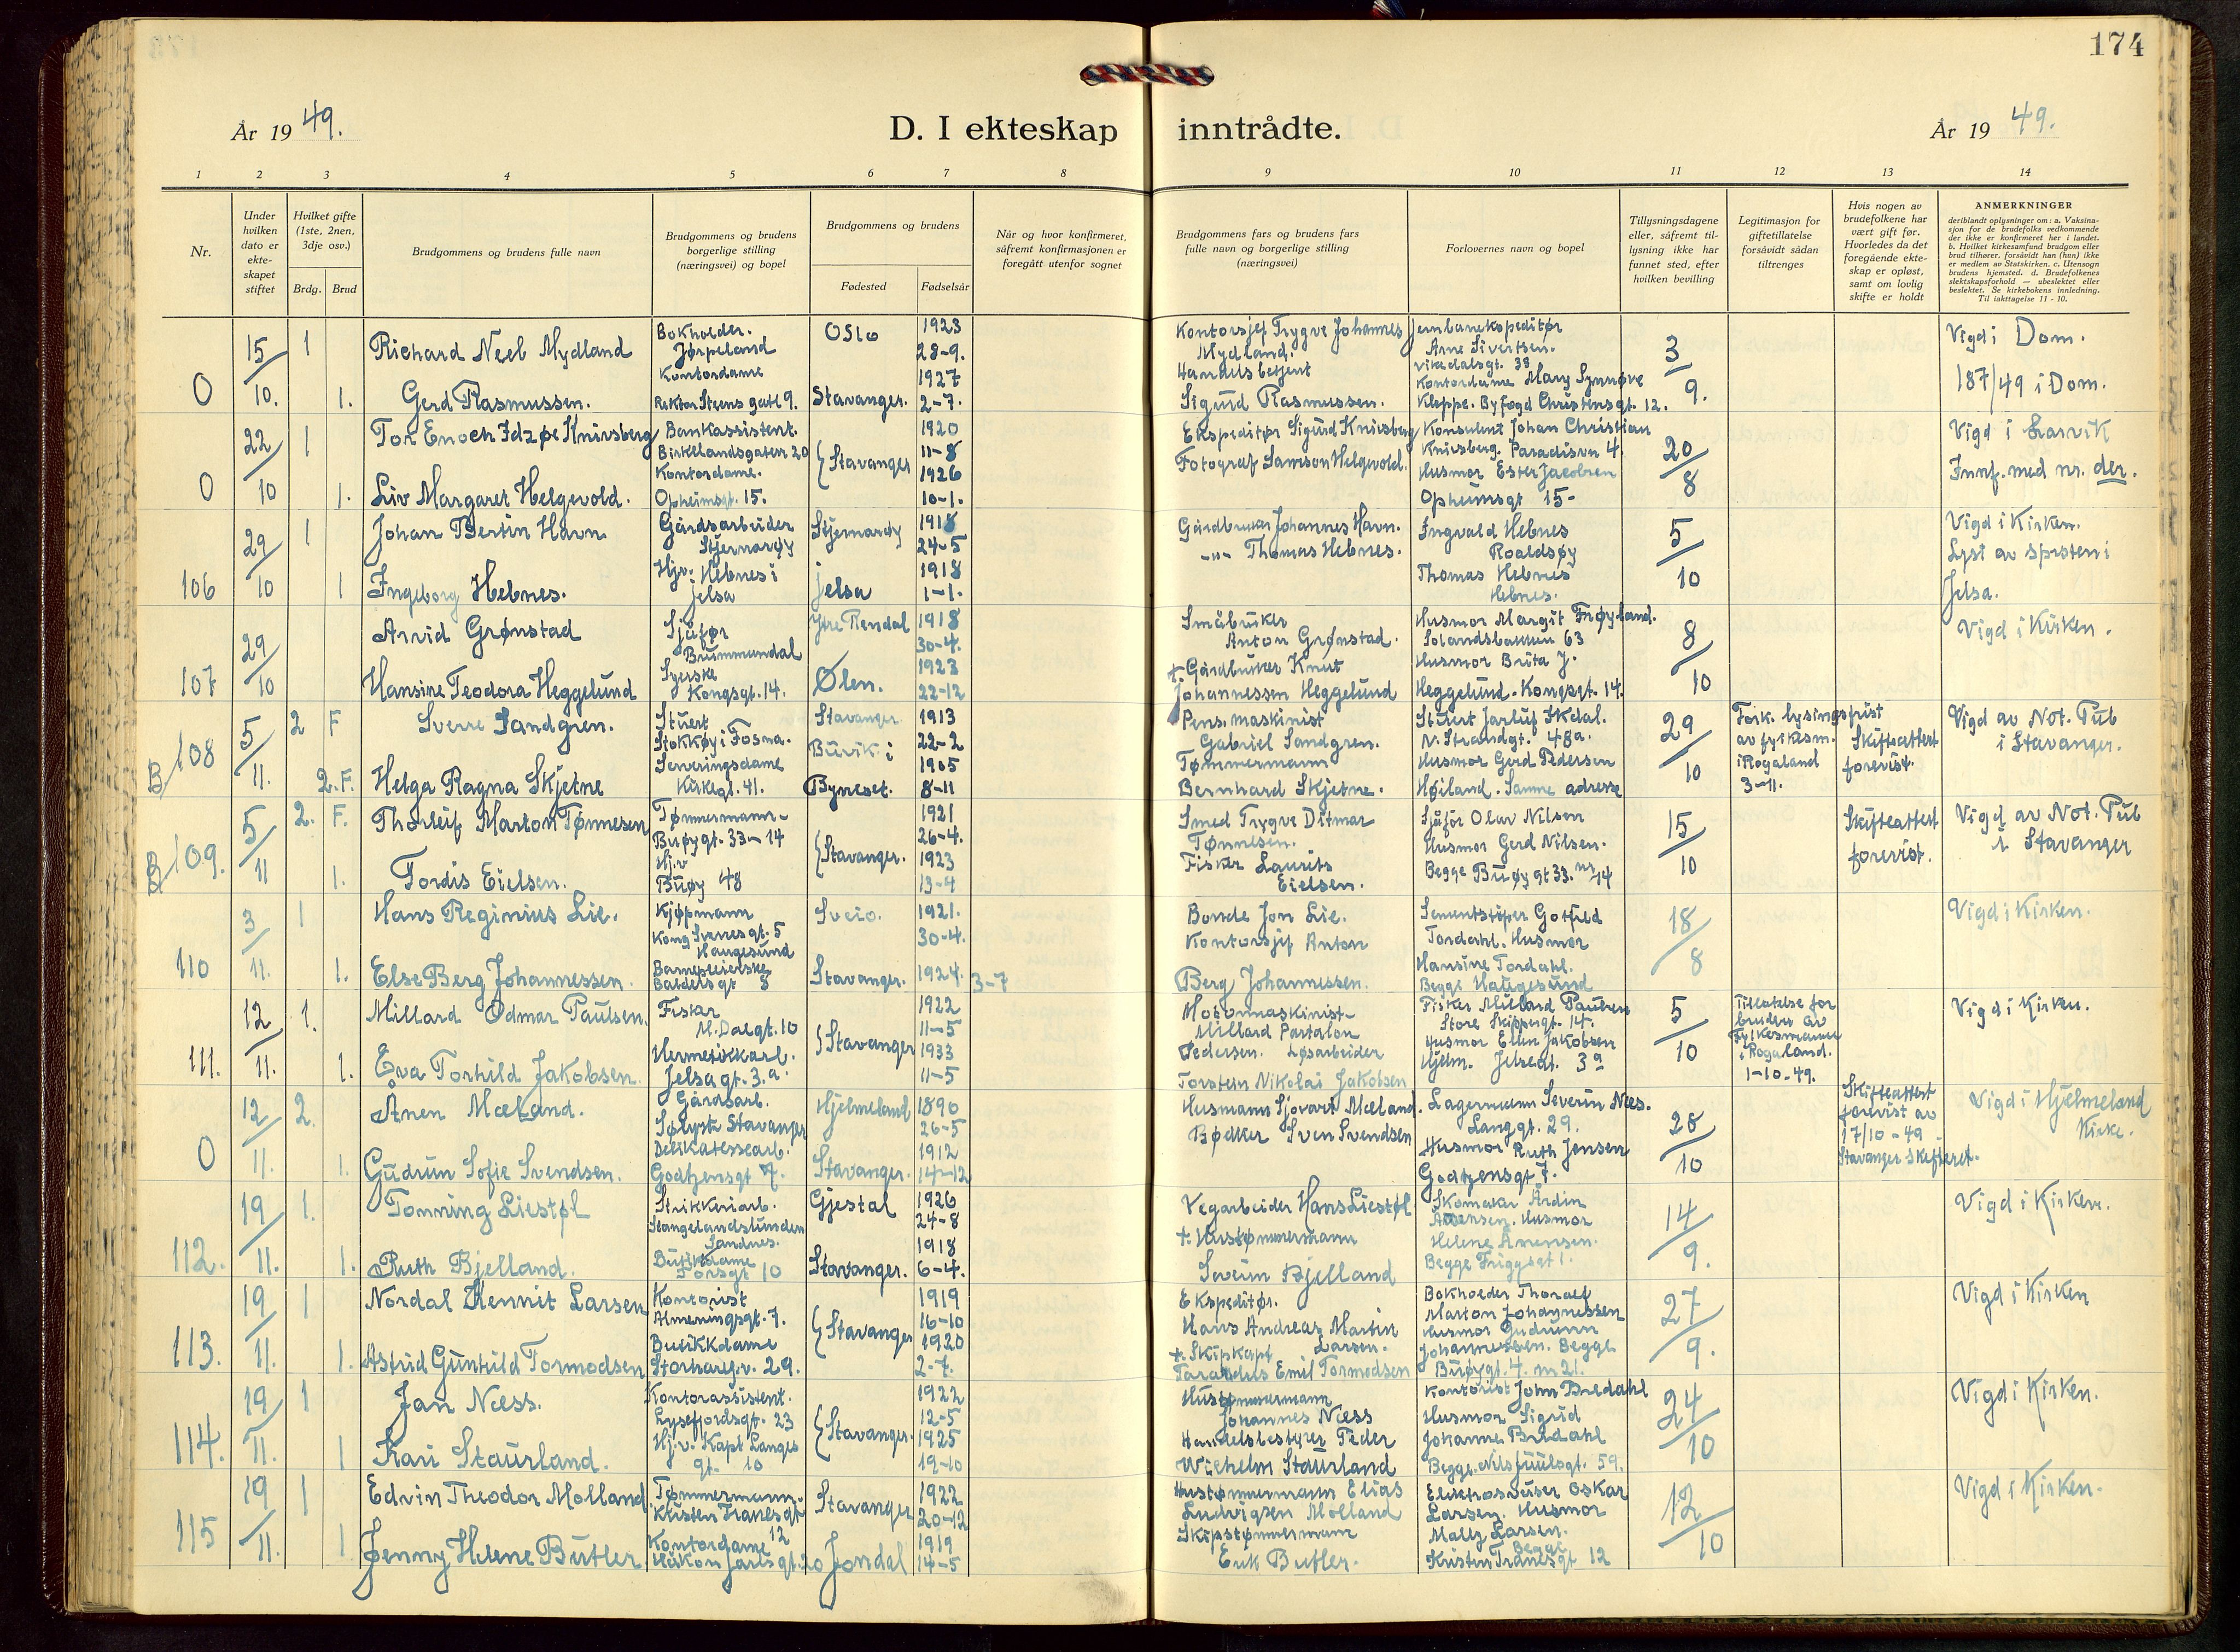 174
År 1949.
D. I ekteskap inntrådte.
År 1949.
1 2 3 4 5 6 7 8 9 10 11 12 13 14
Nr.
Under hvilken dato er ekte-skapet stiftet
Hvilket gifte (1ste, 2nen, 3dje osv.)
Brdg. Brud
Brudgommens og brudens fulle navn
Brudgommens og brudens borgerlige stilling (næringsvei) og bopel
Brudgommens og brudens
Fødested Fødselsår
Når og hvor konfirmeret, såfremt konfirmasjonen er foregått utenfor sognet
Brudgommens fars og brudens fars fulle navn og borgerlige stilling (næringsvei)
Forlovernes navn og bopel
Tillysningsdagene eller, såfremt til-lysning ikke har funnet sted, efter hvilken bevilling
Legitimasjon for giftetillatelse forsåvidt sådan tiltrenges
Hvis nogen av brudefolkene har vært gift før. Hvorledes da det foregående ekte-skap er opløst, samt om lovlig skifte er holdt
ANMERKNINGER
deriblandt oplysninger om: a. Vaksina-sjon for de brudefolks vedkommende der ikke er konfirmeret her i landet. b. Hvilket kirkesamfund brudgom eller brud tilhører, forsåvidt han (hun) ikke er medlem av Statskirken. c. Utensogn brudens hjemsted. d. Brudefolkenes slektskapsforhold — ubeslektet eller beslektet. Se kirkebokens innledning. Til iakttagelse 11 - 10.
0 15/10. 1 Richard Neel Mydland Bokholder. Jørpeland Oslo 1923 28-9. Kontorsjef Trygve Johannes Mydland. Jernbaneekspeditør Arne Sivertsen. Vikedalsgt. 33 3/9. Vigd i Dom.
1. Gerd Rasmussen. Kontordame Rektor Steens gate 9. Stavanger. 1927 2-7. Handelsbetjent Sigurd Rasmussen. Kontordame Mary Synnøve Kleppe. Byfogd Christensgt. 12. 187/49 i Dom.
0 22/10 1 Tor Enoch Idzøe Knivsberg Bankassistent. Birkelandsgaten 20 Stavanger 1920 11-8 Ekspeditør Sigurd Knivsberg Konsulent Johan Christian Knivsberg. Paradisvn 4. 20/8 Vigd i Larvik
1. Liv Margaret Helgevold. Kontordame. Opheimsgt. 15. 1926 10-1. Fotograf Samson Helgevold. Husmor Ester Jacobsen Opheimsgt 15- Innf. med nr. der.
106 29/10 1 Johan Bertin Havn Gårdsarbeider Stjernarøy Stjernarøy 1918 24-5 Gårdbruker Johannes Havn. Ingvald Hebnes Roaldsøy 5/10 Vigd i Kirken.
1 Ingeborg Hebnes. Hjv. Hebnes i Jelsa Jelsa 1918 1-1. -"- Thomas Hebnes. Thomas Hebnes Hebnes. Lyst av spresten i Jelsa.
107 29/10 Arvid Grønstad Sjåfør Brummundal Ytre Rendal 1918 30-4. Småbruker Anton Grønstad. Husmor Margit Frøyland. Solandsbakken 63 8/10 Vigd i Kirken.
Hansine Teodora Heggelund Syerske Kongsgt. 14. Ølen. 1923 22-12 + Gårdbruker Knut Johannessen Heggelund Husmor Brita J. Heggelund. Kongsgt. 14.
B/108 5/11. 2 F Sverre Sandgren. Stuert Stokkøy i Fosna. Stavanger 1913 22-2 Pens. maskinist Gabriel Sandgren. Stuert Jarluf Ekdal. N. Strandgt. 48a. 29/10 Fork. lysingsfrist av fylkesm. i Rogaland 3-11. Skifteattest forevist. Vigd av Not. Pub i Stavanger.
2. F. Helga Ragna Skjetne Serveringsdame Kirkegt. 41. Buvik i Byneset. 1905 8-11 Tømmermann Bernhard Skjetne. Husmor Gerd Pedersen Høiland. Samme adresse
B/109. 5/11 2. F. Thorleif Marton Tønnesen Tømmermann- Buøygt. 33-14 Stavanger. 1921 26-4. Smed Trygve Ditmar Tønnesen. Sjåför Olav Nilsen 15/10 Skifteattest forevist. Vigd av Not. Pub i Stavanger
1. Tordis Eielsen. Hj.v Buøy 48 1923 13-4 Fisker Laurits Eielsen. Husmor Gerd Nilsen. Begge Buøygt 33. nr 14
110 3/11. 1 Hans Reginius Lie. Kjøpmann Kong Sverresgt. 5 Haugesund Sveio. 1921. 30-4. Bonde Jon Lie. Sementstøper Gotfred Tordahl. Husmor 18/8 Vigd i Kirken.
1. Else Berg Johannessen. Barnepleierske Baldersgt 8 Stavanger. 1924. 3-7 Kontorsjef Anton Berg Johannessen. Hansine Tordahl. Begge Haugesund
111. 12/11. 1. Millard Odmar Paulsen. Fisker M. Dalegt. 10 Stavanger 1922 11-5 Motormaskinist- Millard Partalon Pedersen. Fisker Millard Paulsen Store Skippergt. 14. 5/10 Tillatelse for bruden av Fylkesmannen i Rogaland. 1-10-49. Vigd i Kirken.
1. Eva Torhild Jakobsen. Hermetikkarb. Jelsagt. 3.a. 1933 11-5 Løsarbeider Torstein Nikolai Jakobsen Husmor Elin Jakobsen Hjelm. Jelsagt. 3a
0 12/11. 2. Ånen Mæland. Gårdsarb. Sølyst Stavanger Hjelmeland 1890 26-5 Husmann Sjovart Mæland. Lagermann Severin Nees. Langgt. 29. 28/10 Skifteattest forevist av 17/10-49. Stavanger Skifteret. Vigd i Hjelmeland Kirke.
1. Gudrun Sofie Svendsen. Delikatessearb. Godtzensgt 7. Stavanger. 1912 14-12 Bødker Sven Svendsen Husmor Ruth Jensen Godtzensgt 7.
112. 19/11. 1. Tonning Liestøl Strikkeriarb. Stangelandslunden Sandnes. Gjestal 1926 24-8 Vegarbeider Hans Liestøl Skomaker Ardin Husmor 14/9. Vigd i Kirken.
1. Ruth Bjelland. Butikkdame Torsgt 10 Stavanger. 1918 6-4. + Hustømmermann Sveim Bjelland Helene Anensen. Begge Friggset 1.
113. 19/11. 1 Nordal Kennit Larsen Kontorist Almeningsgt. 7. Stavanger 1919 16-10 Ekspeditør. Hans Andreas Martin Larsen. Bokholder Thoralf Marton Johannessen 27/9. Vigd i Kirken
1. Astrid Gunhild Tormodsen Butikkdame Storhaugv. 29. 1920 2-7. +. Skipskapt. Emil Tormodsen Husmor Gudrunn Johannessen. Begge Buøygt. 4. m 21.
114. 19/11. 1 Jan Næss. Kontorassistent. Lysefjordsgt. 23 Stavanger. 1922 12-5 Hustømmermann Johannes Næss Kontorist John Bredahl 24/10 Vigd i Kirken.
1 Kari Staurland. Hj.v. Kapt Langes gt. 10 1925 19-10 Handelsbestyrer Peder Wilhelm Staurland Husmor Sigrid Johanne Bredahl Begge. Nils Juulsgt. 59.
115 19/11. 1 Edvin Theodor Molland Tømmermann. Kristen Tranesgt 12 Stavanger 1922 20-12 Hustømmermann Elias Ludvigsen Molland Elektrosveiser Oskar Larsen. Husmor 12/10 Vigd i Kirken.
1 Jenny Helene Butler Kontordame Håkon Jarlsgt. 20 Jondal 1919 14-5 Skipstømmermann Erik Butler. Mally Larsen. Begge Kristen Tranesgt 12